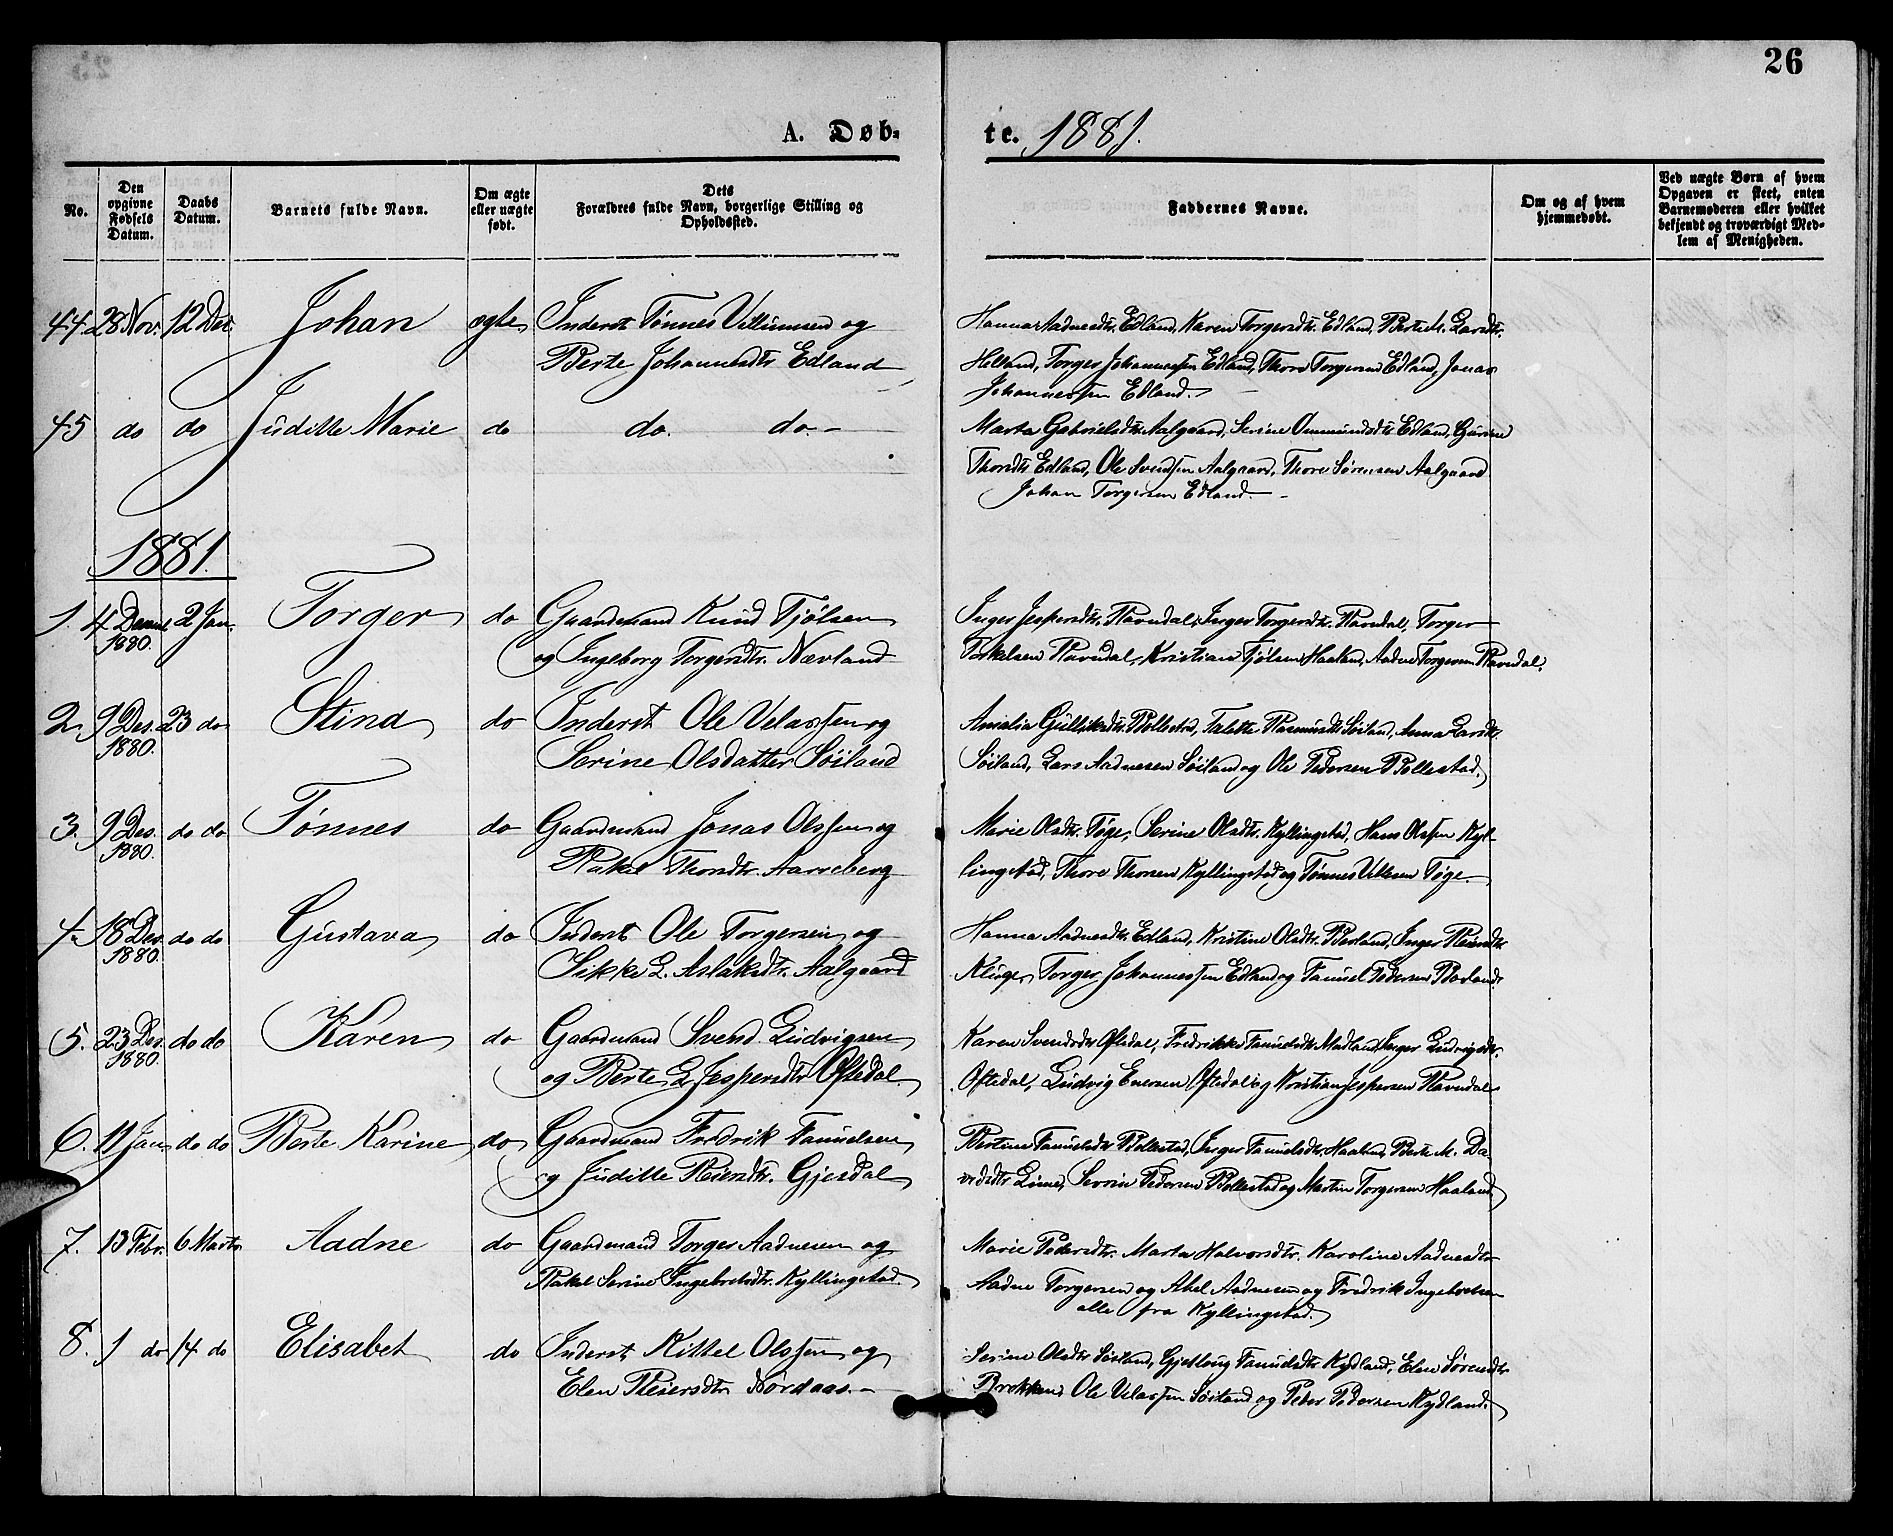 26
A. Døb-te. 1881.
No.
Den opgivne Fødsels Datum.
Daabs Datum.
Barnets fulde Navn.
Om ægte eller uægte født.
Dets Forældres fulde Navn, borgerlige Stilling og Opholdssted.
Faddernes Navne.
Om og af hvem hjemmedøbt.
Ved uægte Børn af hvem Opgaven er skeet, enten Barnemoderen eller hvilket bekjendt og troværdigt Medlem af Menigheden.
44. 28 Nov. 12 Des. Johan ægte Inderst Tønnes Villumsen og
Berte Johannesdtr Edland
Hanna Aadnesdtr. Edland, Karen Torgersdtr. Edland, Berte M. Larsdtr.
Helland, Torger Johannessen Edland, Thore Torgersen Edland, Jonas
Johannessen Edland.
45 do do Juditte Marie do do. do.
Marta Gabrielsdtr. Aalgaard, Serine Ommundsdtr Edland, Gurine
Thorsdtr Edland, Ole Svendsen Aalgaard, Thore Sørensen Aalgaard
Johan Torgersen Edland.
1881.
1. 4 1880. 2 Jan. Torger do Gaardmand Knud Tjølsen
og Ingeborg Torgersdtr. Nævland
Inger Jespersdtr. Ravndal, Inger Torgersdtr. Ravndal, Torger
Torkelsen Ravndal, Kristian Tjølsen Haaland, Aadne Torgersen Ravndal.
2. 9 Des. 1880. 23 do Stina do Inderst Ole Velassen og
Serine Olsdatter Søiland
Amalia Gulliksdtr. Bollestad, Talette Rasmusdtr Søiland, Anna Larsdtr.
Søiland, Lars Aadnesen Søiland og Ole Pedersen Bollestad.
3. 9 Des. 1880. do do Tønnes do Gaardmand Jonas Olssen og
Rakel Thorsdtr. Aarreberg
Marie Olsdtr. Tøge, Serine Olsdtr. Kyllingstad, Hans Olssen Kyl-
lingstad, Thore Thorsen Kyllingstad og Tønnes Tøge.
4. 18 Des. 1880. do do Gustava do Inderst Ole Torgersen og
Sikke L. Aslaksdtr. Aalgaard
Hanna Aadnesdtr. Edland, Kristine Olsdtr. Berland, Inger Reiersdtr
Kluge, Torger Johannessen Edland og Samuel Pedersen
5. 23 Des. 1880. do do Karen do Gaardmand Svend Ludvigsen
og Berte L. Jespersdtr Oftedal
Karen Svendsdtr Oftedal, Fredrikke Samuelsdtr Madland, Inger Ludvigsdtr.
Oftedal, Ludvig Enersen Oftedal og Kristian Jespersen Ravndal
6. 11 Jan. do do Berte Karine do Gaardmand Fredrik Samuelsen
og Juditte Reiersdtr. Gjesdal
Bertine Samuelsdtr Bollestad, Inger Samuelsdtr. Haaland, Berte M. Da-
vidsdtr Lime, Sevrin Pedersen Bollestad og Martin Torgersen Haaland
7. 13 Febr. 6 Marts Aadne do Gaardmand Torger Aadnesen og
Rakel Serine Ingebretsdtr. Kyllingstad.
Marie Pedersdtr. Marta Halvorsdtr. Karoline Aadnesdtr
Aadne Torgersen og Abel Aadnesen og Fredrik Ingebretsen
alle fra Kyllingstad.
8. 1 do 14 do Elisabet do Inderst Kittel Olssen og
Elen Reiersdtr Nordaas.
Serine Olsdtr Søiland, Gjetloug Samuelsdtr. Kydland, Elen Sørensdtr
Brekken, Ole Velassen Søiland og Peder Pedersen Kydland.